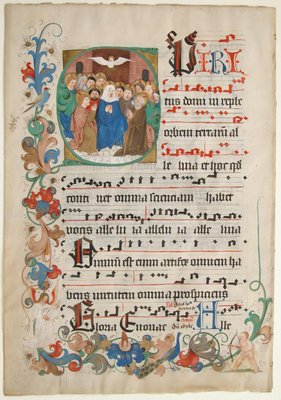 SPIRI
tus domi ni reple
orbem terrarū al
le luia et hoc qd
conti net omnia scienciam habet
uocis alle lu ia alleluia alle luia
Omniū est enim artifex omnem ha
bens uirtutem omnia prospiciens
Gloria Euouae Alle